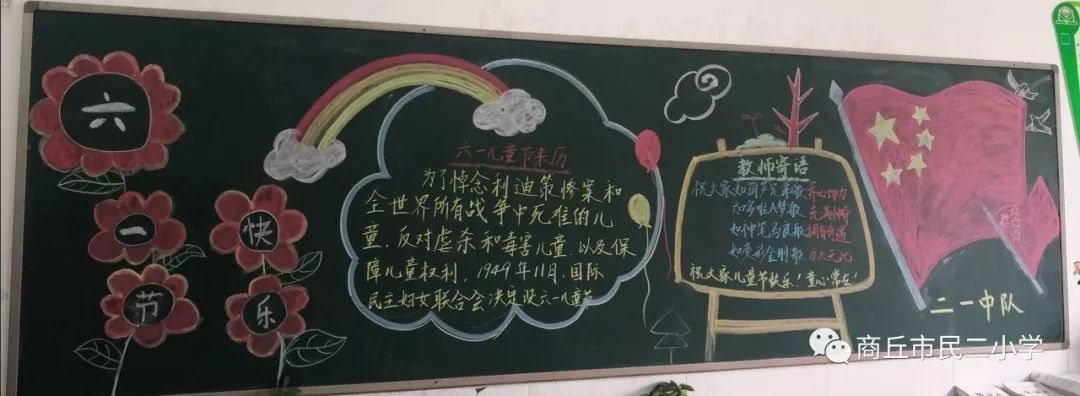 六
一
快
节
乐
六一儿童节来历
为了悼念利迪策惨案和
全世界所有战争中死难的儿
童,反对虐杀和毒害儿童,以及保
障儿童权利,1949年11月,国际
民主妇女联合会决定设六一儿童节
教师寄语
祝大家如葫芦兄弟般齐心协力
如哆啦A梦般
如神笔马良般拥有奇遇
如变形金刚般力大无比
祝大家儿童节快乐!童心常在!
二一中队
商丘市民二小学